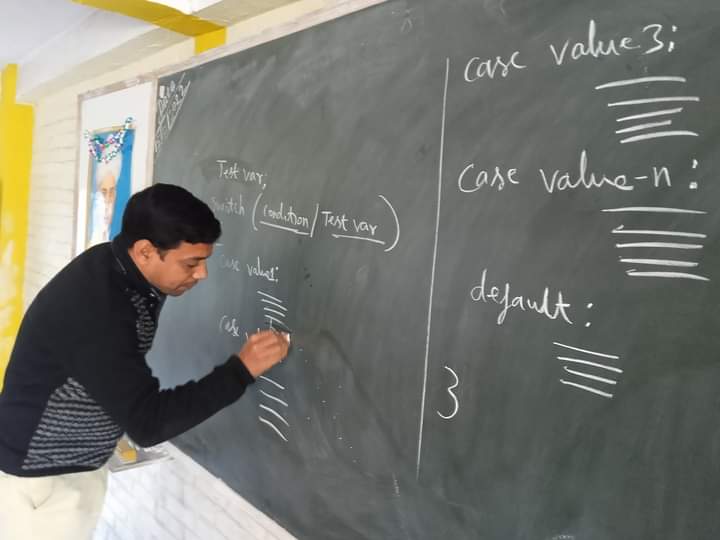 Test var;
switch (condition/Test var)
Case value1:
Case
case value3:
case value-n:
default:
}